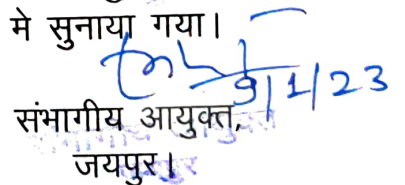 मे सुनाया गया।
9/1/23
संभागीय आयुक्त,
जयपुर।